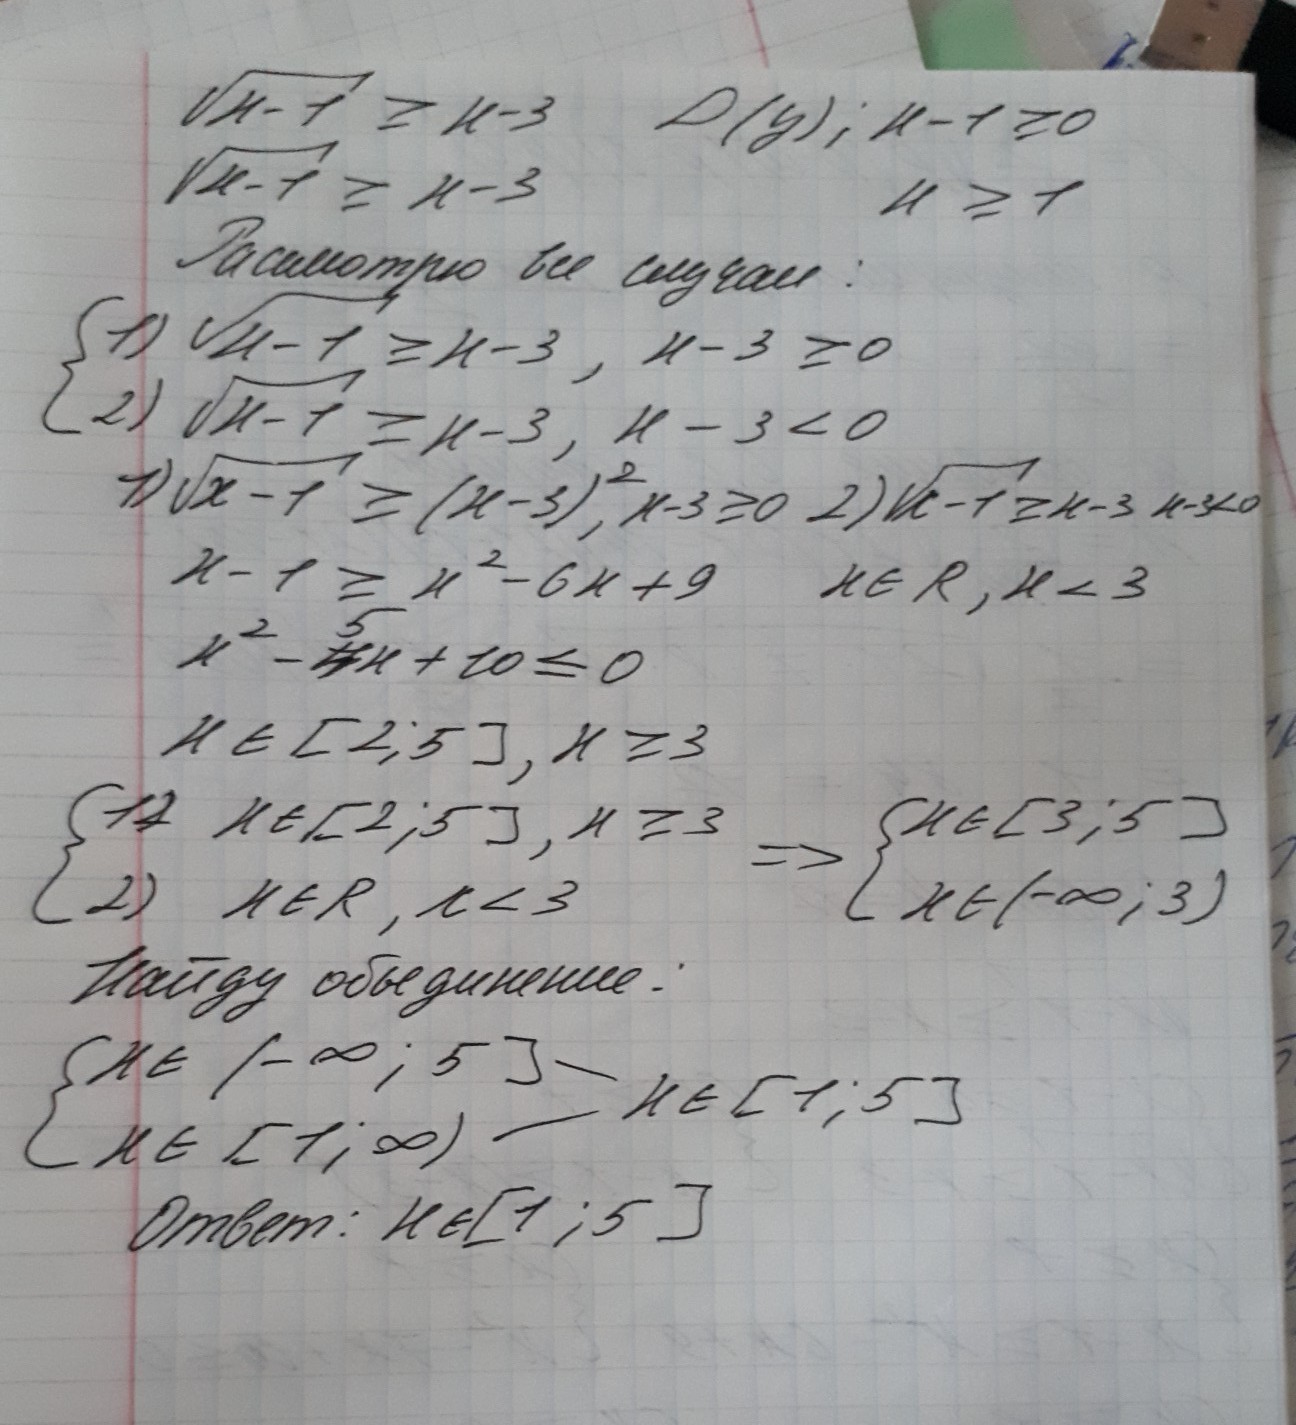 √x-1 ≥ x-3 D(y); x-1≥0
√x-1 ≥ x-3 x ≥ 1
Расмотрю все случаи:
{1) √x-1 ≥ x-3, x-3 ≥0
2) √x-1 ≥ x-3, x-3<0
1) √x-1 ≥ (x-3)², x-3≥0 2) √x-1≥x-3 x-3<0
x-1 ≥ x²-6x+9 x∈R, x<3
x²-5x+10≤0
x∈[2;5], x≥3
{1) x∈[2;5], x≥3 => {x∈[3;5]
2) x∈R, x<3 x∈(-∞;3)
Найду объединение:
{x∈(-∞;5]
x∈[1;5]
x∈[1;∞)
Ответ: x∈[1;5]